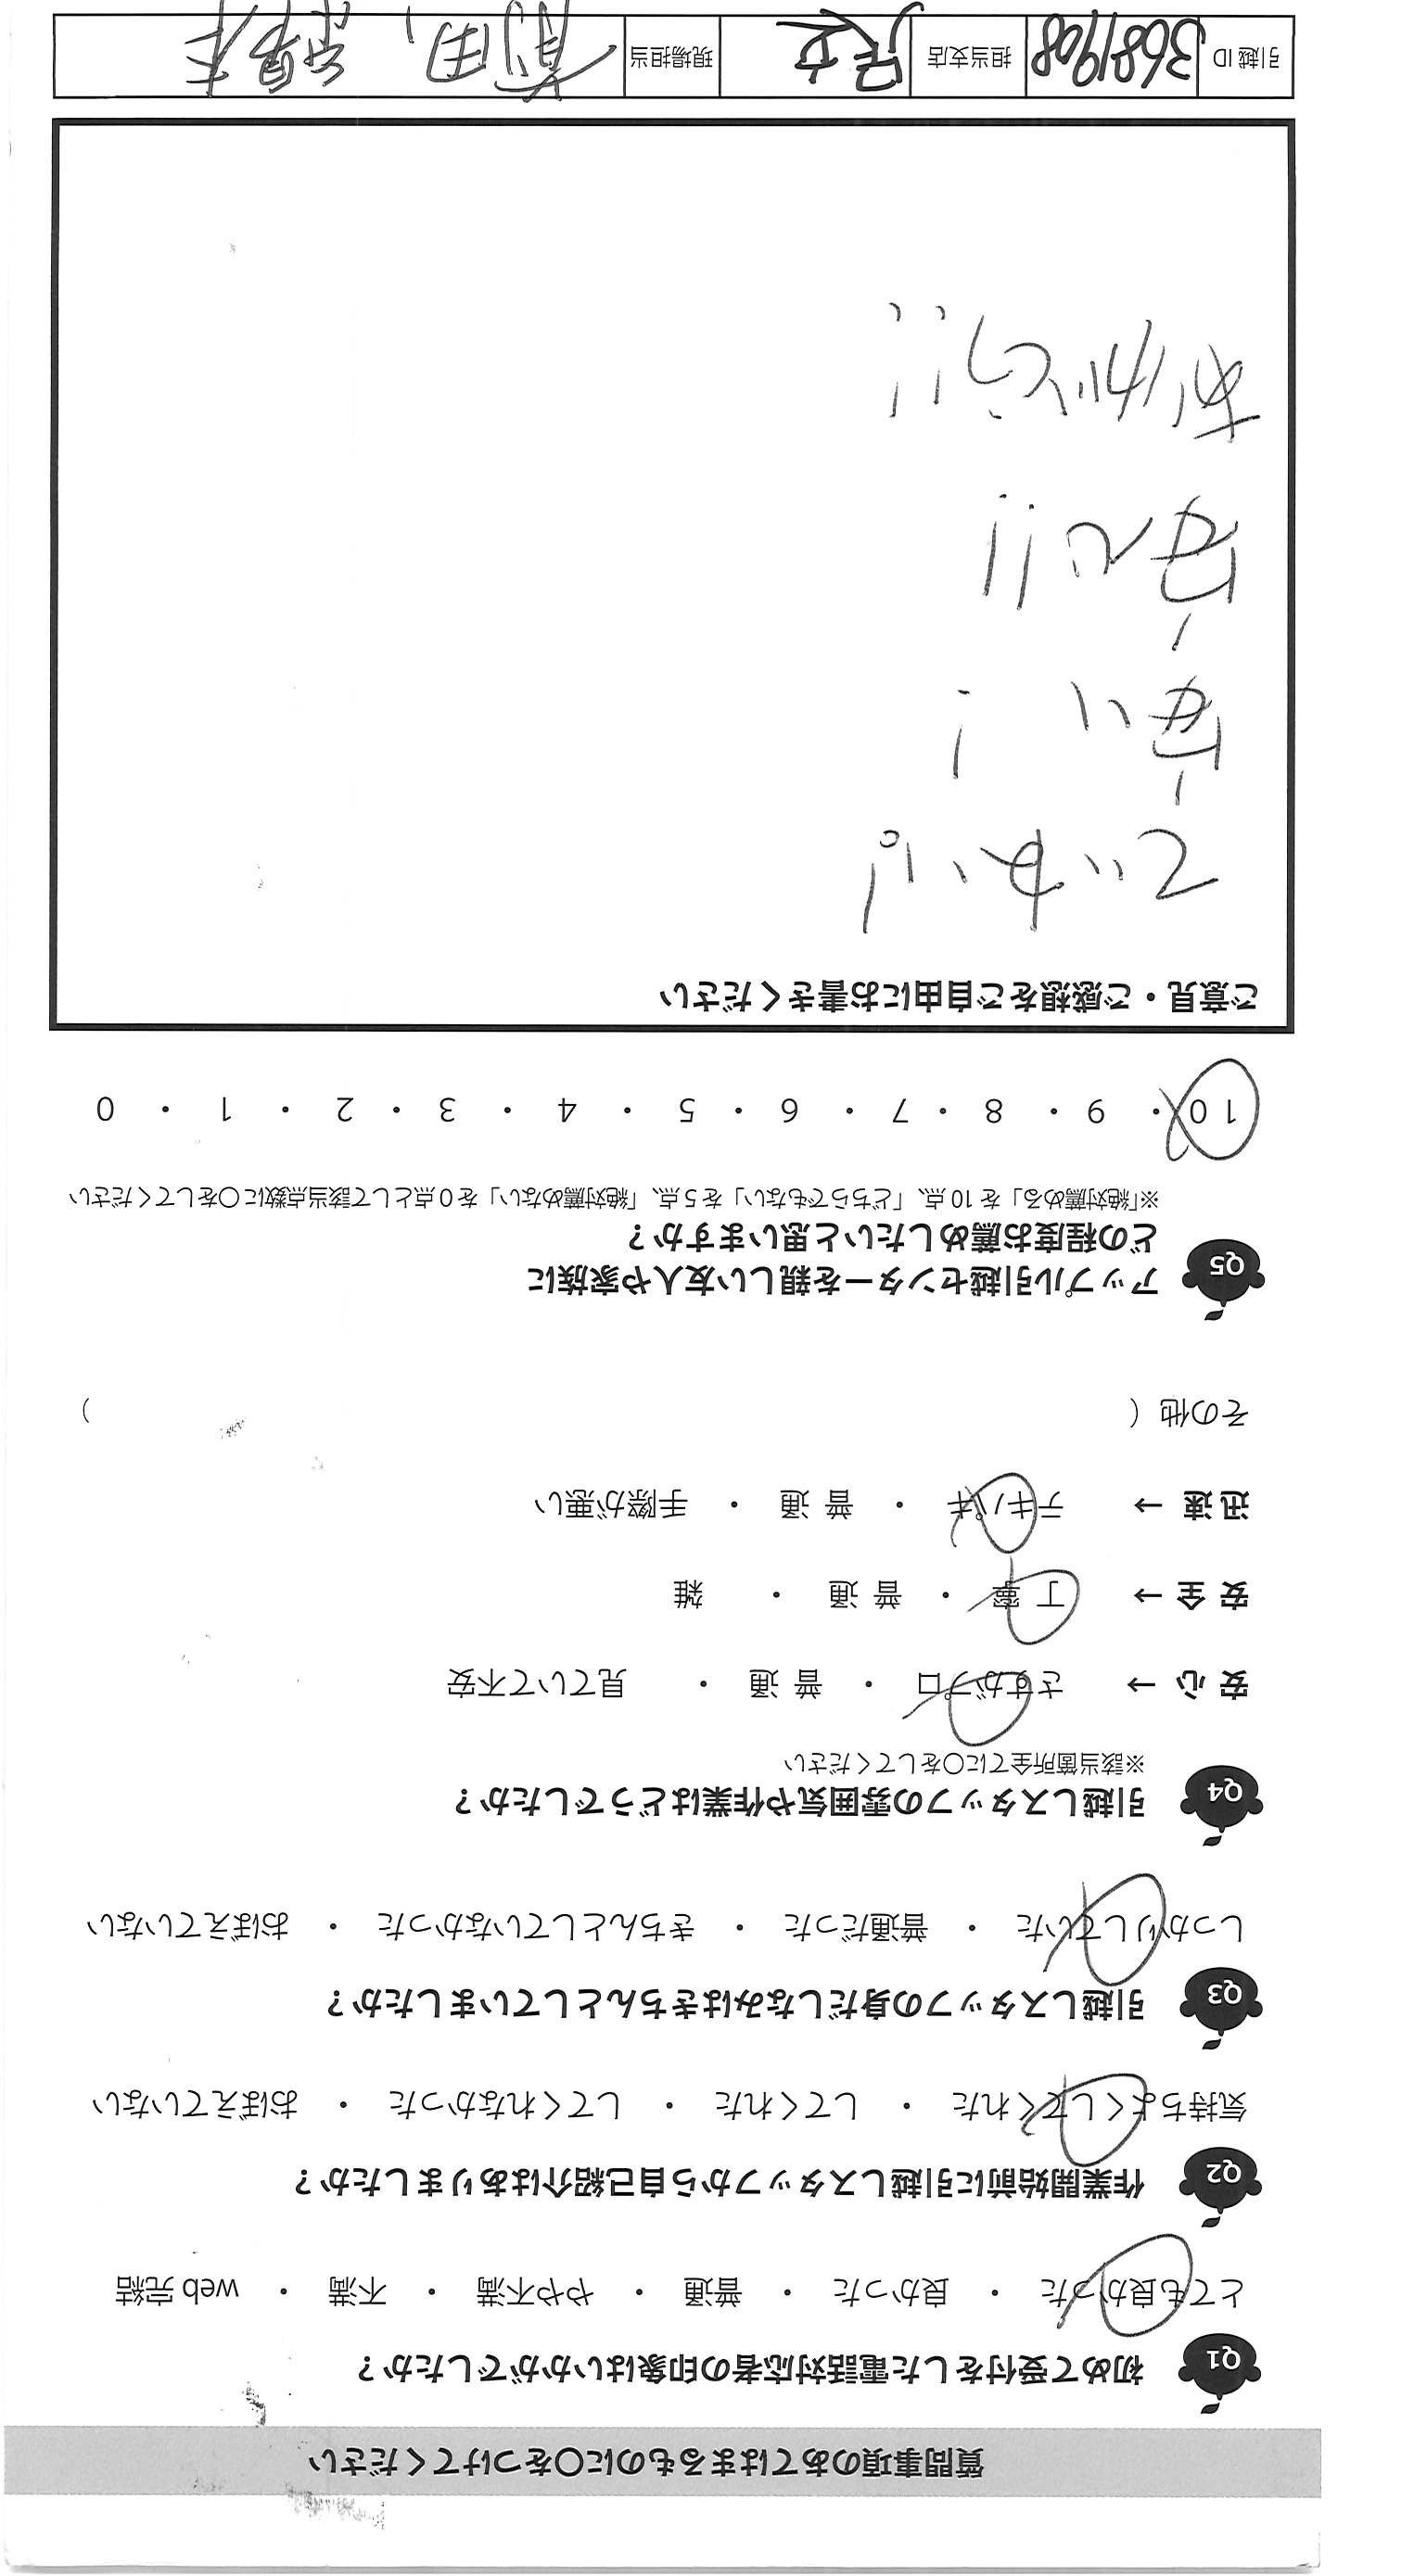 質問事項のあてはまるものに〇をつけてください
Q1 初めて受付をした電話対応者の印象はいかがでしたか？
とても良かった ・ 良かった ・ 普通 ・ やや不満 ・ 不満 ・ web 完結
Q2 作業開始前に引越しスタッフから自己紹介はありましたか？
気持ちよくしてくれた ・ してくれた ・ してくれなかった ・ おぼえていない
Q3 引越しスタッフの身だしなみはきちんとしていましたか？
しっかりしていた ・ 普通だった ・ きちんとしていなかった ・ おぼえていない
Q4 引越しスタッフの雰囲気や作業はどうでしたか？
※該当箇所全てに〇をしてください
安 心 → さすがプロ ・ 普 通 ・ 見ていて不安
安 全 → 丁 寧 ・ 普 通 ・ 雑
迅 速 → テキパキ ・ 普 通 ・ 手際が悪い
その他（ ）
Q5 アップル引越センターを親しい友人や家族に
どの程度お薦めしたいと思いますか？
※「絶対薦める」を 10 点、「どちらでもない」を 5 点、「絶対薦めない」を 0 点として該当点数に〇をしてください
10 ・ 9 ・ 8 ・ 7 ・ 6 ・ 5 ・ 4 ・ 3 ・ 2 ・ 1 ・ 0
ご意見・ご感想をご自由にお書きください
ていねい!
早い!
安い!!
引越 ID 3681908 担当支店 足立 現場担当 前田,